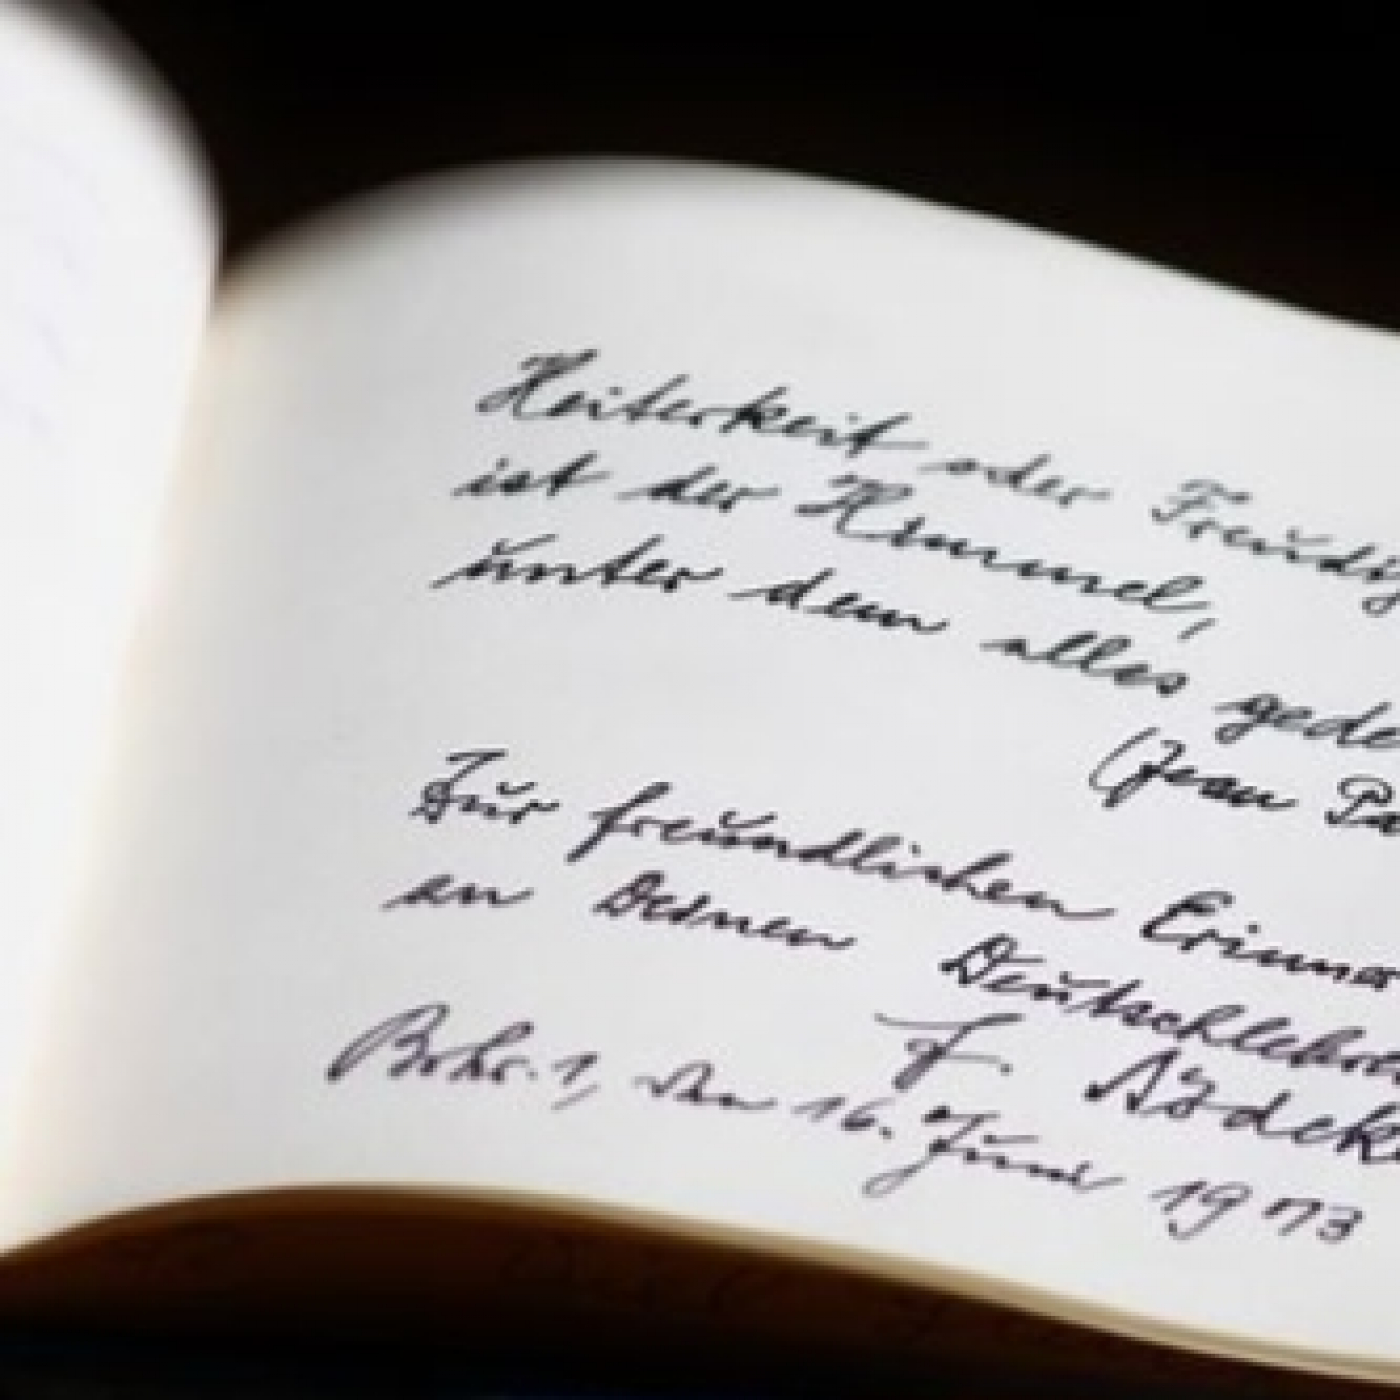 Heiterkeit oder Freudig
ist der Himmel,
unter dem alles gede
(Jean Pa
Zur freundlichen Erinner
an Deinen Deutschlehre
F.
den 16. Juni 1973